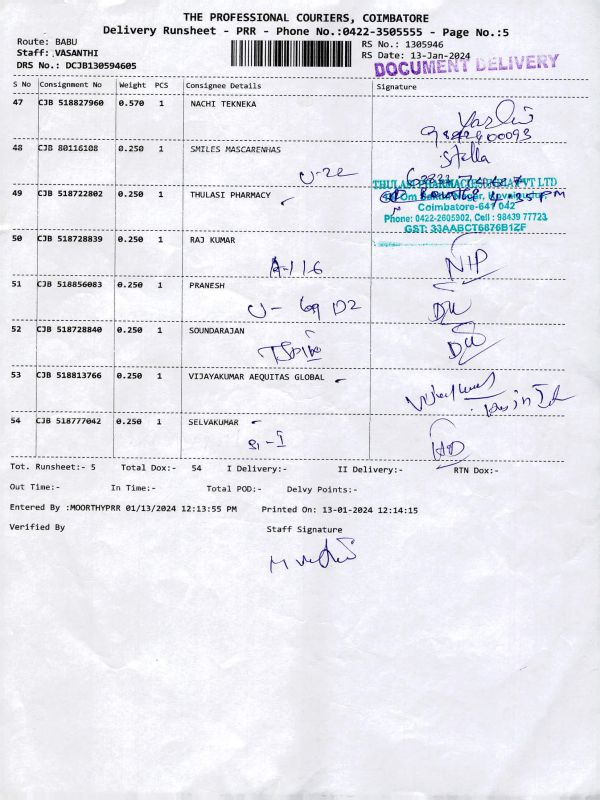 THE PROFESSIONAL COURIERS, COIMBATORE
Delivery Runsheet - PRR - Phone No.:0422-3505555 - Page No.:5
Route: BABU
RS No.: 1305946
Staff: VASANTHI
RS Date: 13-Jan-2024
DRS No.: DCJB130594605
DOCUMENT DELIVERY
S No Consignment No Weight PCS Consignee Details Signature
47 CJB 518827960 0.570 1 NACHI TEKNEKA
48 CJB 80116108 0.250 1 SMILES MASCARENHAS
Stella
U-22
49 CJB 518722802 0.250 1 THULASI PHARMACY
Coimbatore-641 042
Phone: 0422-2605902, Cell : 98439 77723
GST: 33AABCT6876B1ZF
50 CJB 518728839 0.250 1 RAJ KUMAR
A-116
51 CJB 518856083 0.250 1 PRANESH
U-69 D2
52 CJB 518728840 0.250 1 SOUNDARAJAN
53 CJB 518813766 0.250 1 VIJAYAKUMAR AEQUITAS GLOBAL
54 CJB 518777042 0.250 1 SELVAKUMAR
Tot. Runsheet:- 5 Total Dox:- 54 I Delivery:- II Delivery:- RTN Dox:-
Out Time:- In Time:- Total POD:- Delvy Points:-
Entered By :MOORTHYPRR 01/13/2024 12:13:55 PM Printed On: 13-01-2024 12:14:15
Verified By Staff Signature